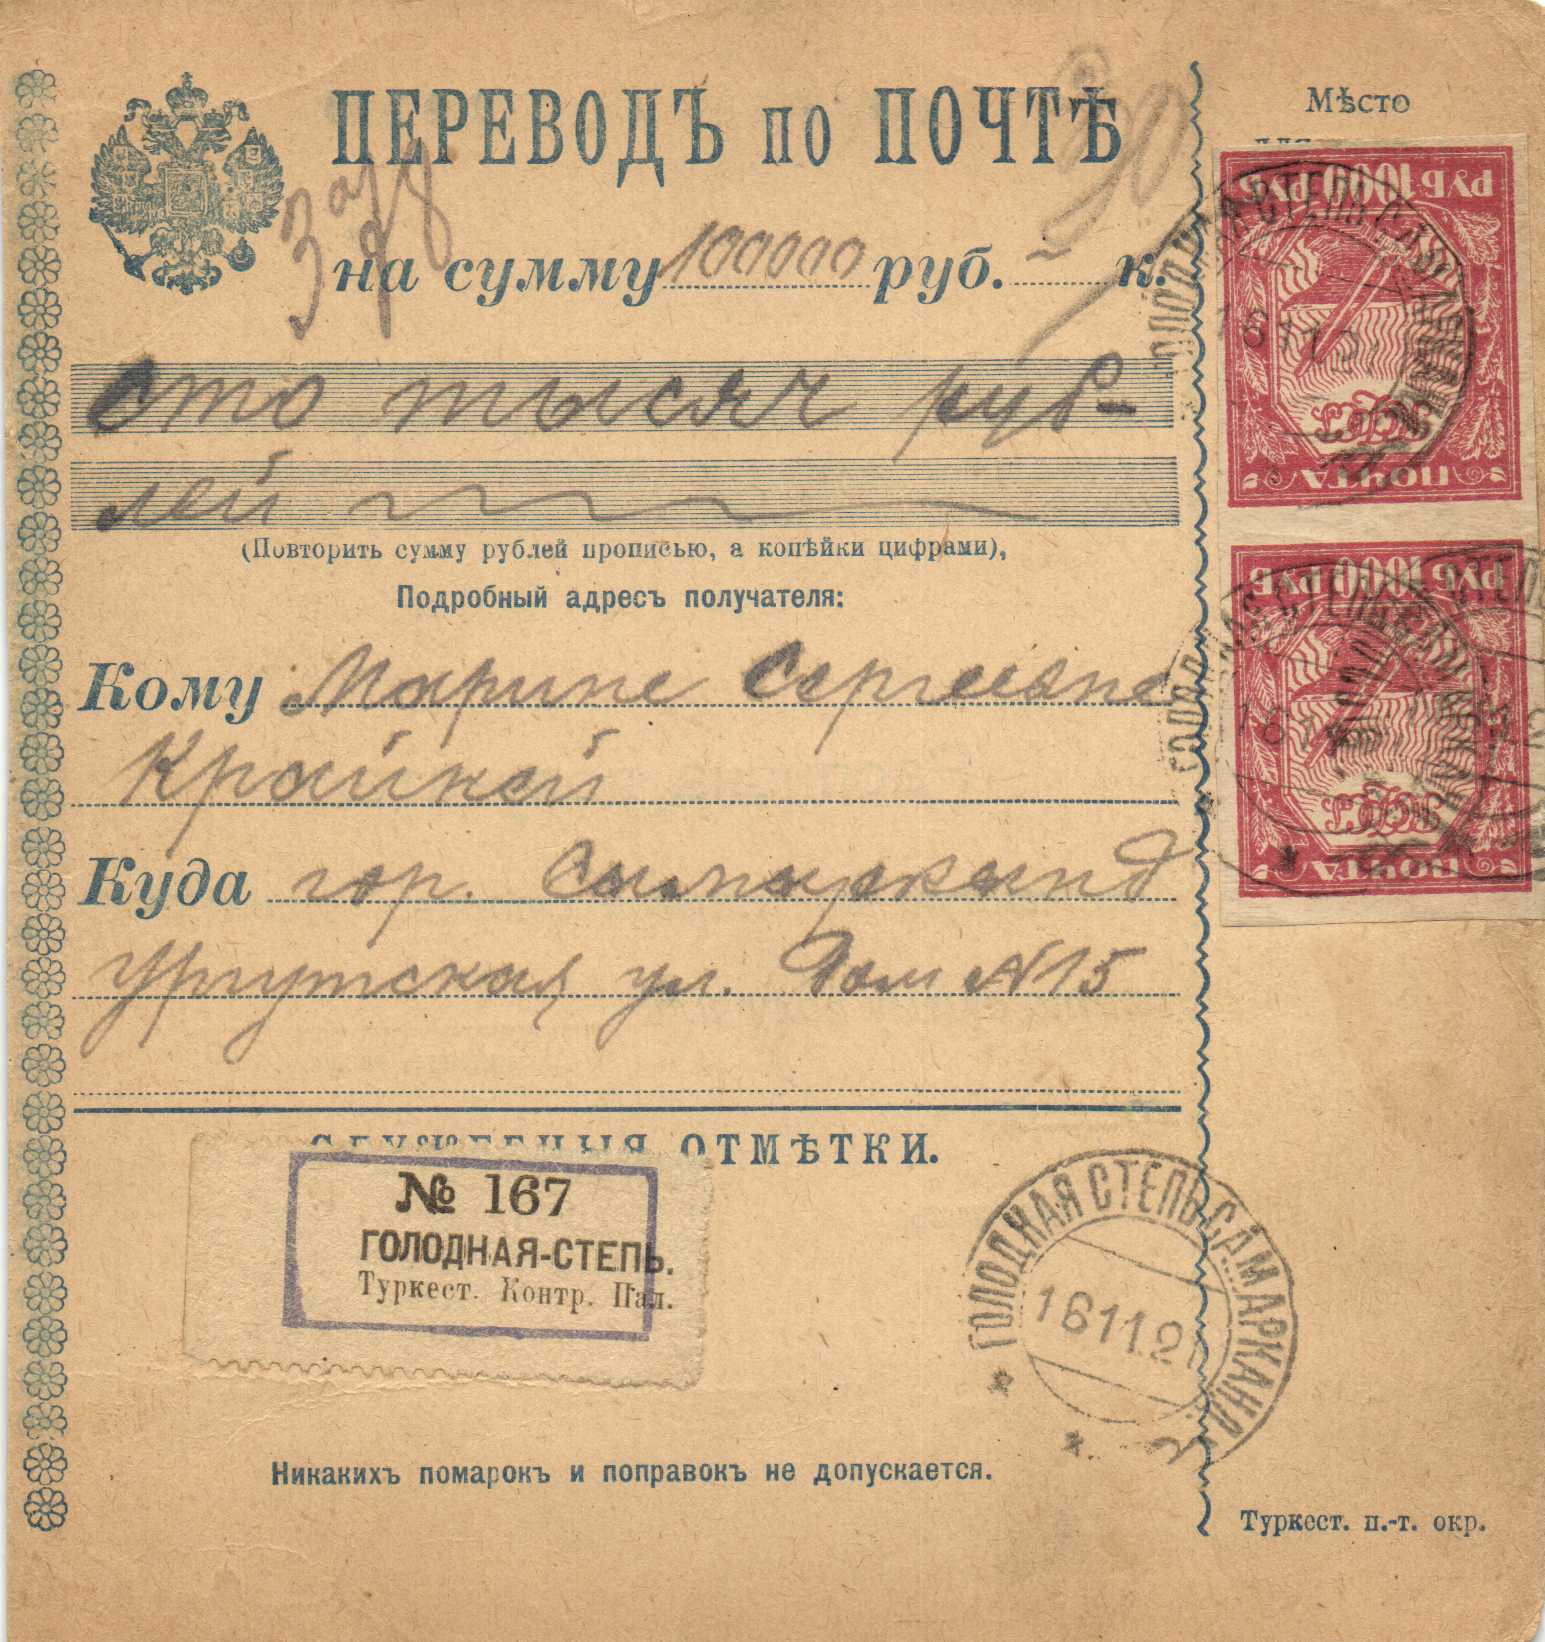 ПЕРЕВОДЪ по ПОЧТѢ
на сумму 100000 руб. к.
сто тысяч руб-
лей
(Повторить сумму рублей прописью, а копѣйки цифрами),
Подробный адресъ получателя:
Кому Марине Сергеевне
Крайней
Куда гор. Самарканд
Ургутская ул. Дом №15
СЛУЖЕБНЫЯ ОТМѢТКИ.
№ 167
ГОЛОДНАЯ-СТЕПЬ.
Туркест. Контр. Пал.
ГОЛОДНАЯ СТЕПЬ САМАРКАНД
161121
Никакихъ помарокъ и поправокъ не допускается.
Мѣсто
РУБ 1000 РУБ
ПОЧТА
РУБ 1000 РУБ
ПОЧТА
Туркест. п.-т. окр.